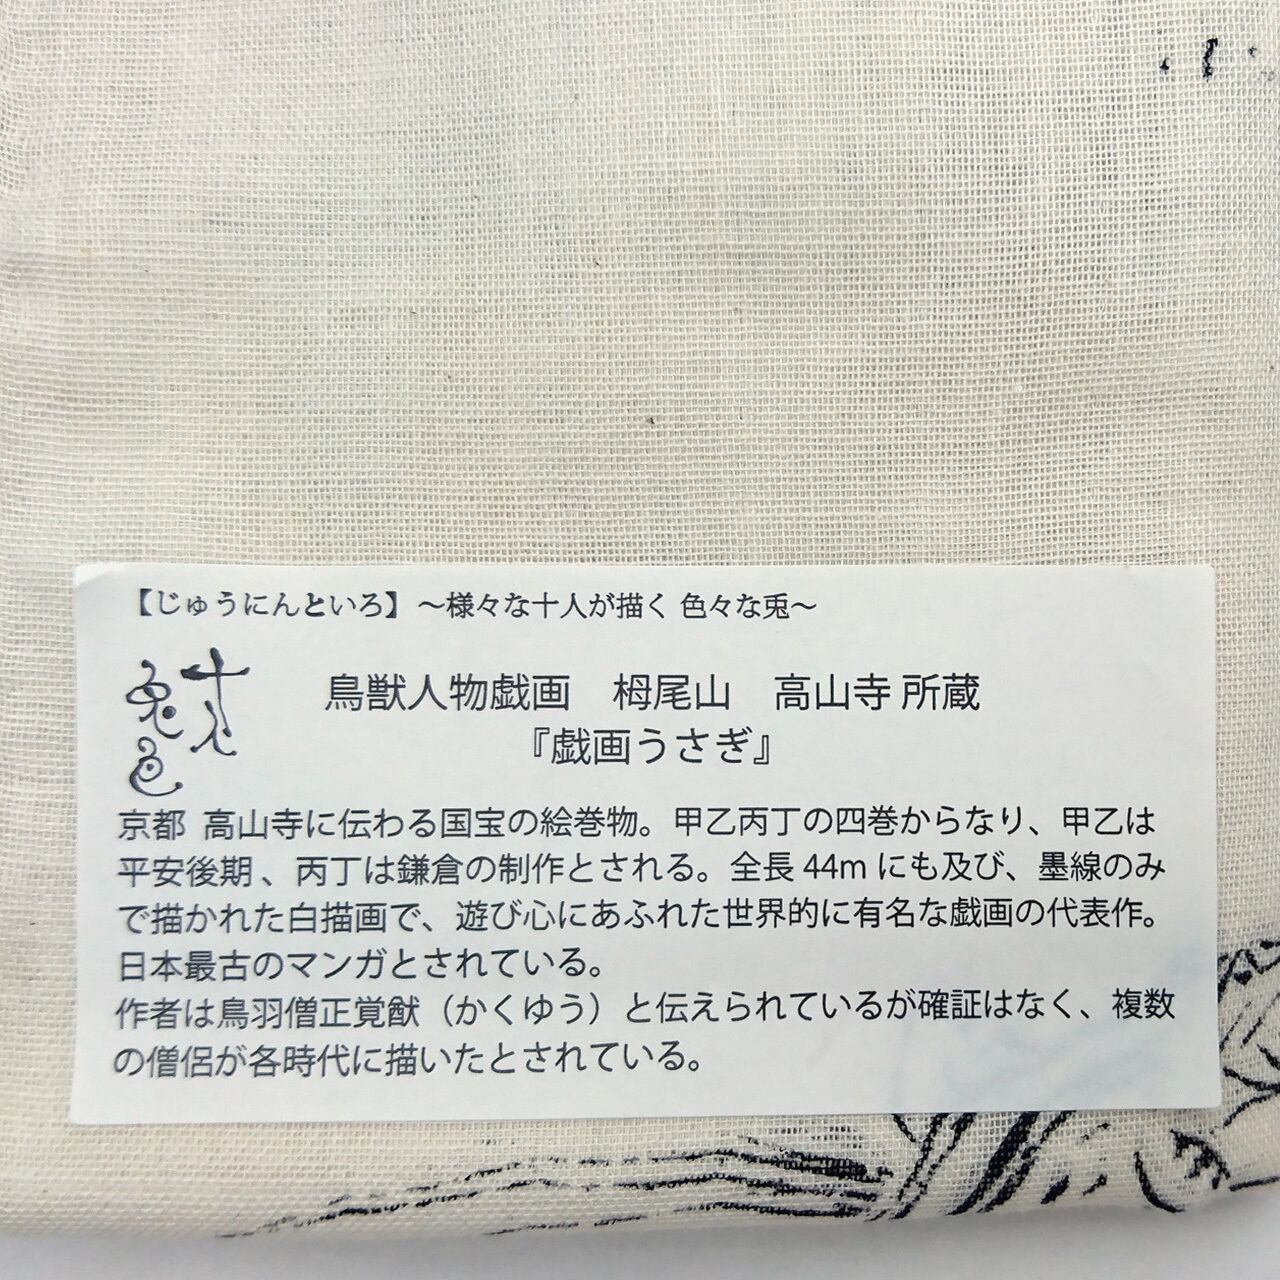 【じゅうにんといろ】～様々な十人が描く 色々な兎～
十人
兎色
鳥獣人物戯画　栂尾山　高山寺 所蔵
『戯画うさぎ』
京都 高山寺に伝わる国宝の絵巻物。甲乙丙丁の四巻からなり、甲乙は
平安後期、丙丁は鎌倉の制作とされる。全長 44m にも及び、墨線のみ
で描かれた白描画で、遊び心にあふれた世界的に有名な戯画の代表作。
日本最古のマンガとされている。
作者は鳥羽僧正覚猷（かくゆう）と伝えられているが確証はなく、複数
の僧侶が各時代に描いたとされている。